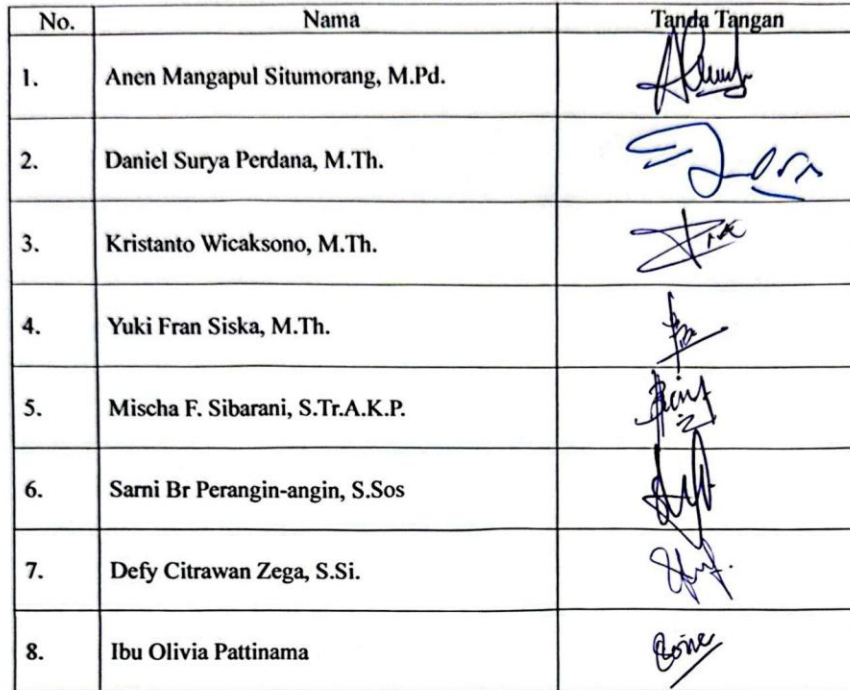 No. Nama Tanda Tangan
1. Anen Mangapul Situmorang, M.Pd.
2. Daniel Surya Perdana, M.Th.
3. Kristanto Wicaksono, M.Th.
4. Yuki Fran Siska, M.Th.
5. Mischa F. Sibarani, S.Tr.A.K.P.
6. Sarni Br Perangin-angin, S.Sos
7. Defy Citrawan Zega, S.Si.
8. Ibu Olivia Pattinama